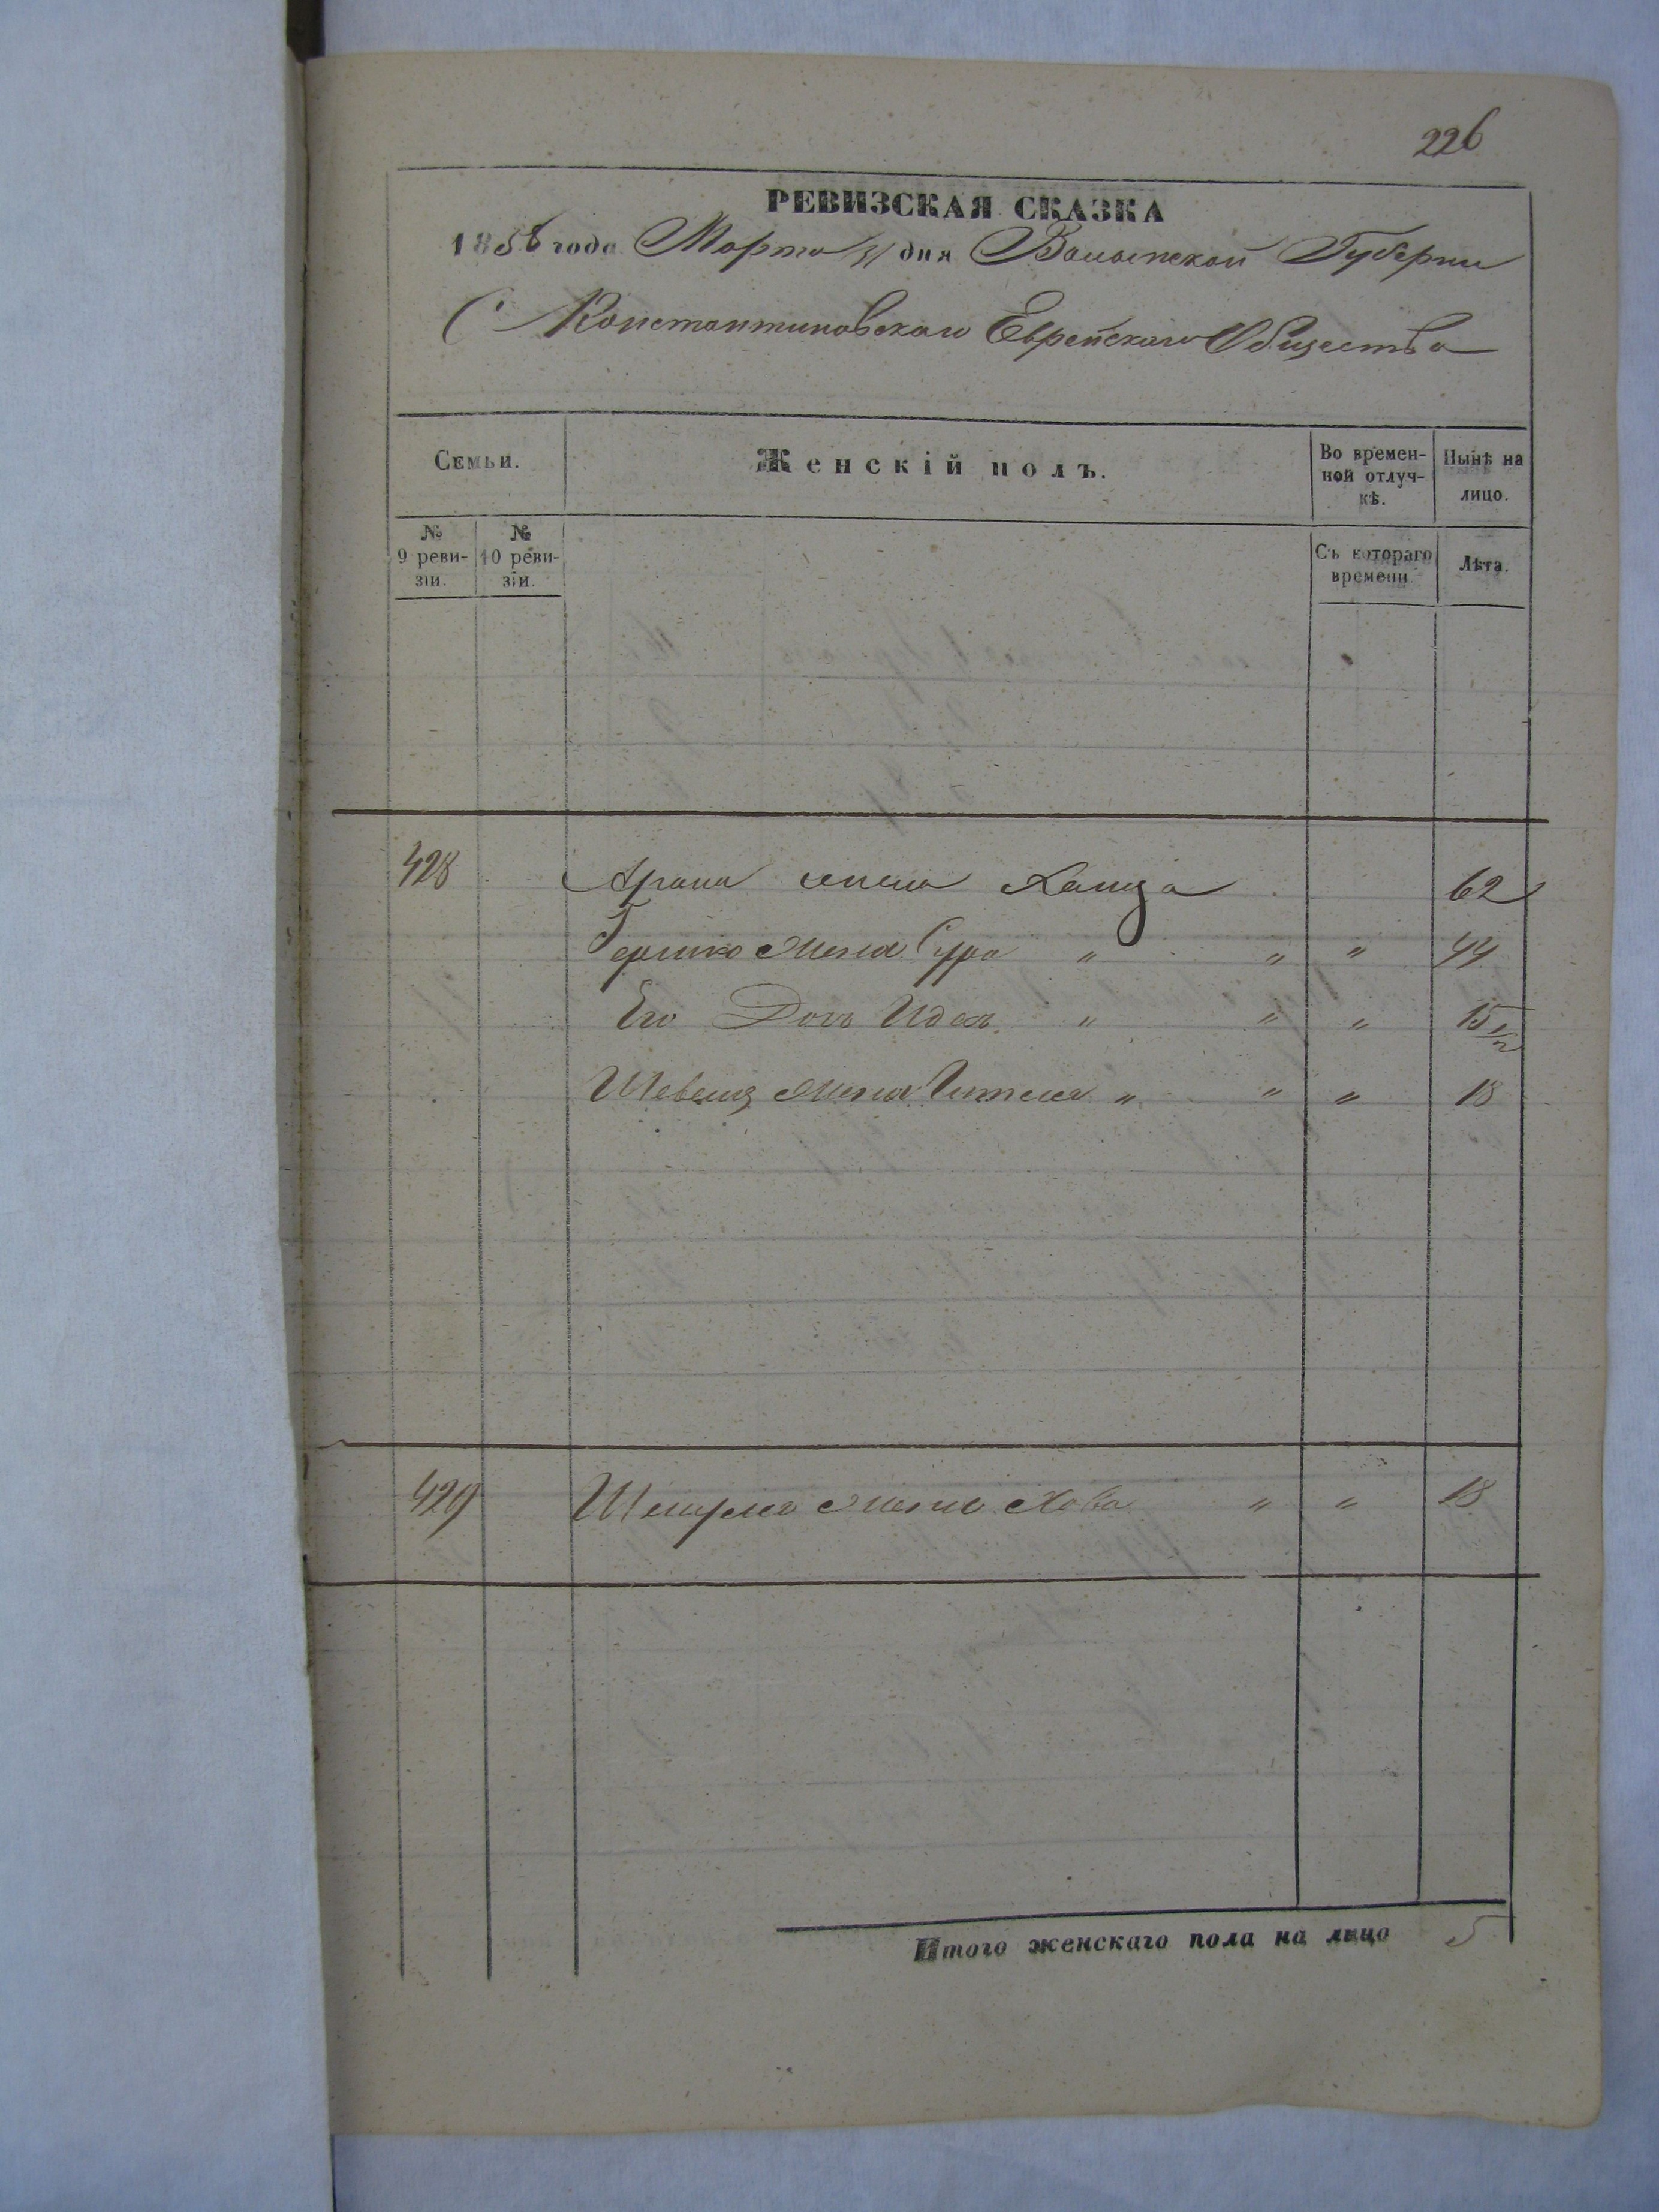 226
РЕВИЗСКАЯ СКАЗКА
1858 года Марта 31 дня Волынской Губернии
С Константиновскаго Еврейскаго Общества
Семьи.
Женскій полъ.
Во времен-
ной отлуч-
кѣ.
Нынѣ на
лицо.
№
9 реви-
зіи.
№
10 реви-
зіи.
Съ котораго
времени
Лѣта.
428 Арана жена Хайца 62
Гершко жена Сура " " " 44
Его Дочь Идес " " " 15 1/2
жена Гителя " " " 18
429 жена Хава " " 18
Итого женскаго пола на лицо 5